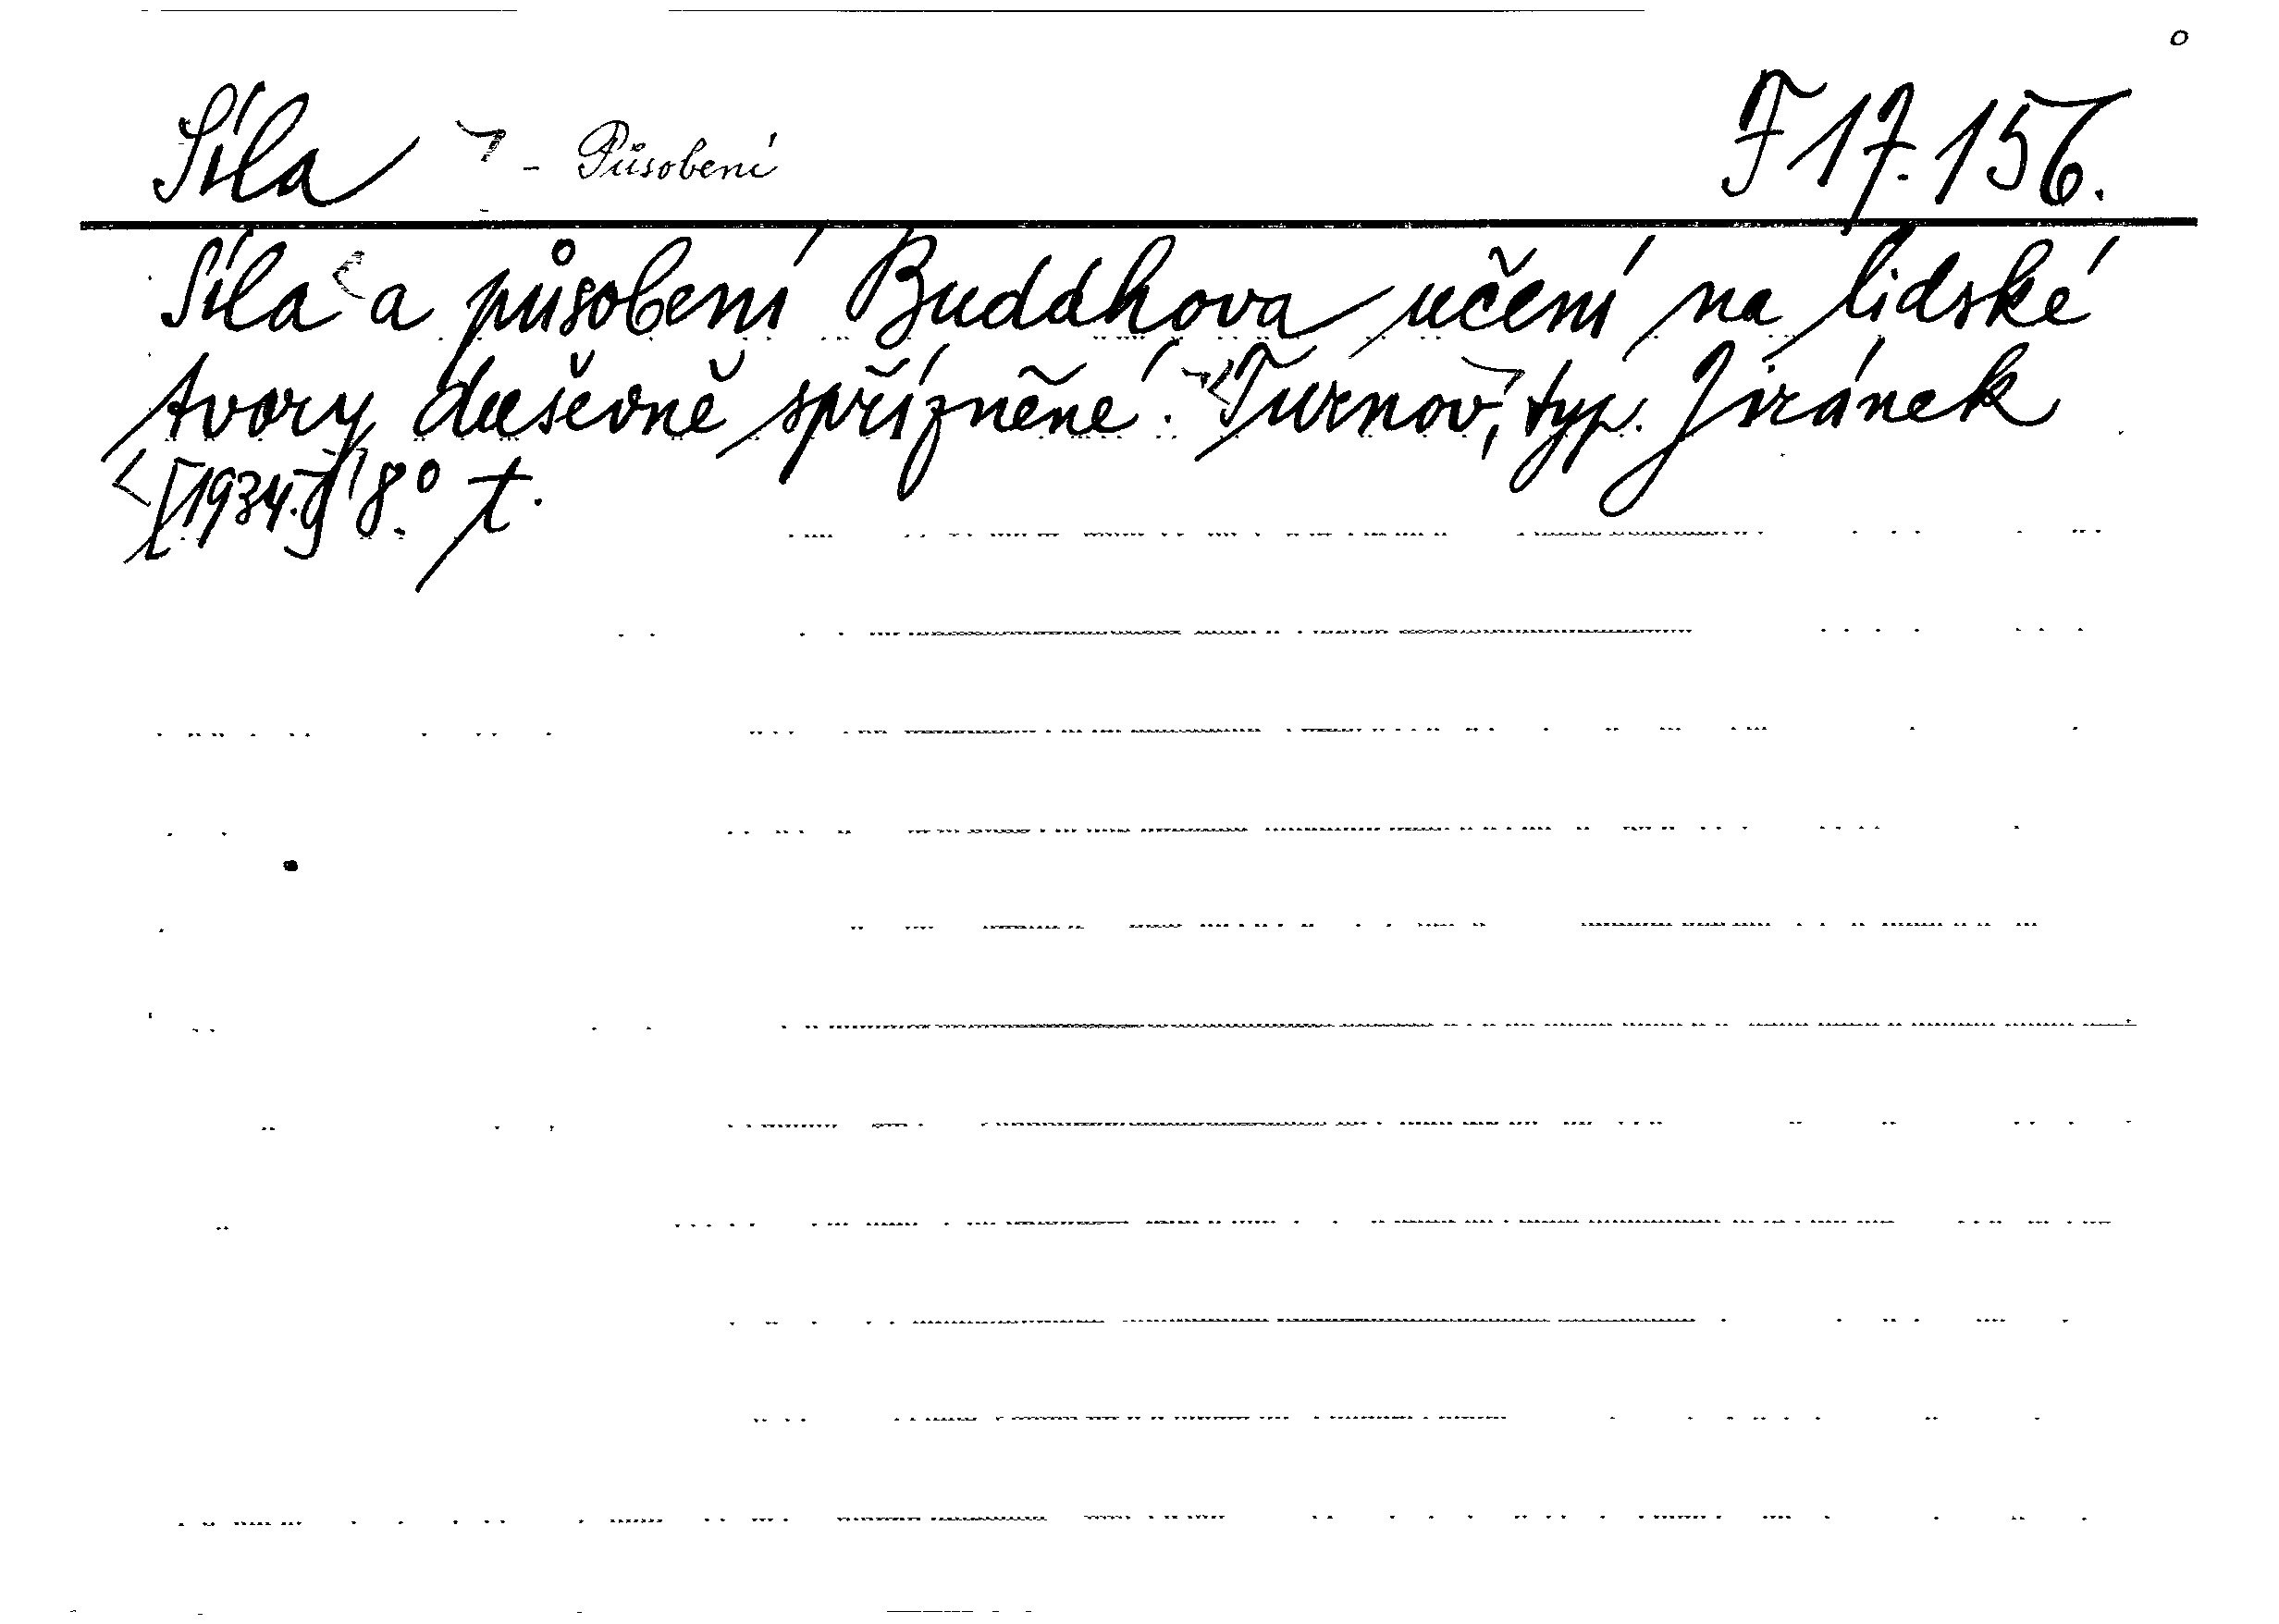 Síla - Působení F 17.156.
Síla a působení Buddhova učení na lidské
tvory duševně spřízněné. Turnov, typ. Jiránek
[1934.] 8°. t.